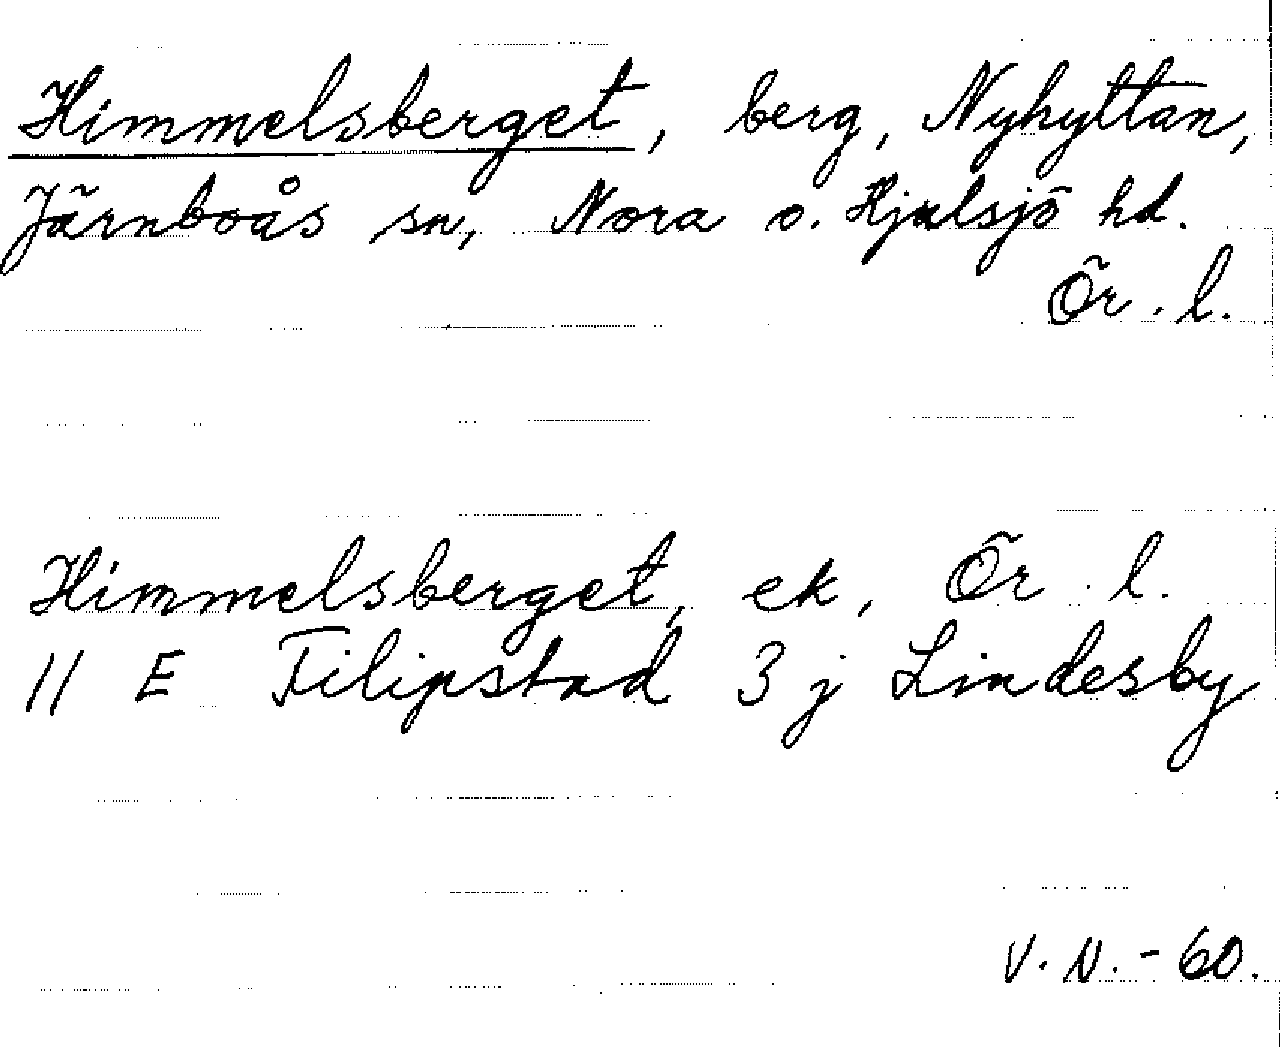 Himmelsberget, berg, Nyhyttan,
Järnboås sn, Nora o. Hjulsjö hd.
Ör. l.
Himmelsberget, ek, Ör. l.
11 E Filipstad 3 j Lindesby
V. N. - 60.